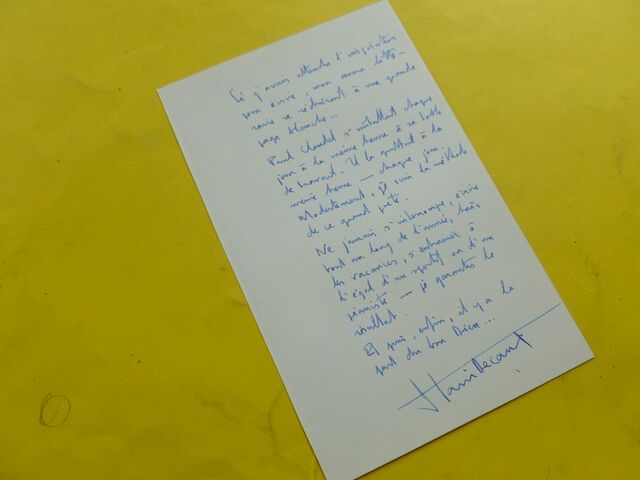 Si j'avais attendu l'inspiration
pour écrire, mon œuvre litté-
raire se réduirait à une grande
page blanche...
Paul Claudel s'installait chaque
jour à la même heure à sa table
de travail. Il la quittait à la
même heure — chaque jour.
Modestement, je suis la méthode
de ce grand poète.
Ne jamais s'interrompre, écrire
tout au long de l'année, hors
les vacances, s'entraîner à
l'égal d'un sportif ou d'un
pianiste — je garantis le
résultat.
Et puis, enfin, il y a la
part du bon Dieu...